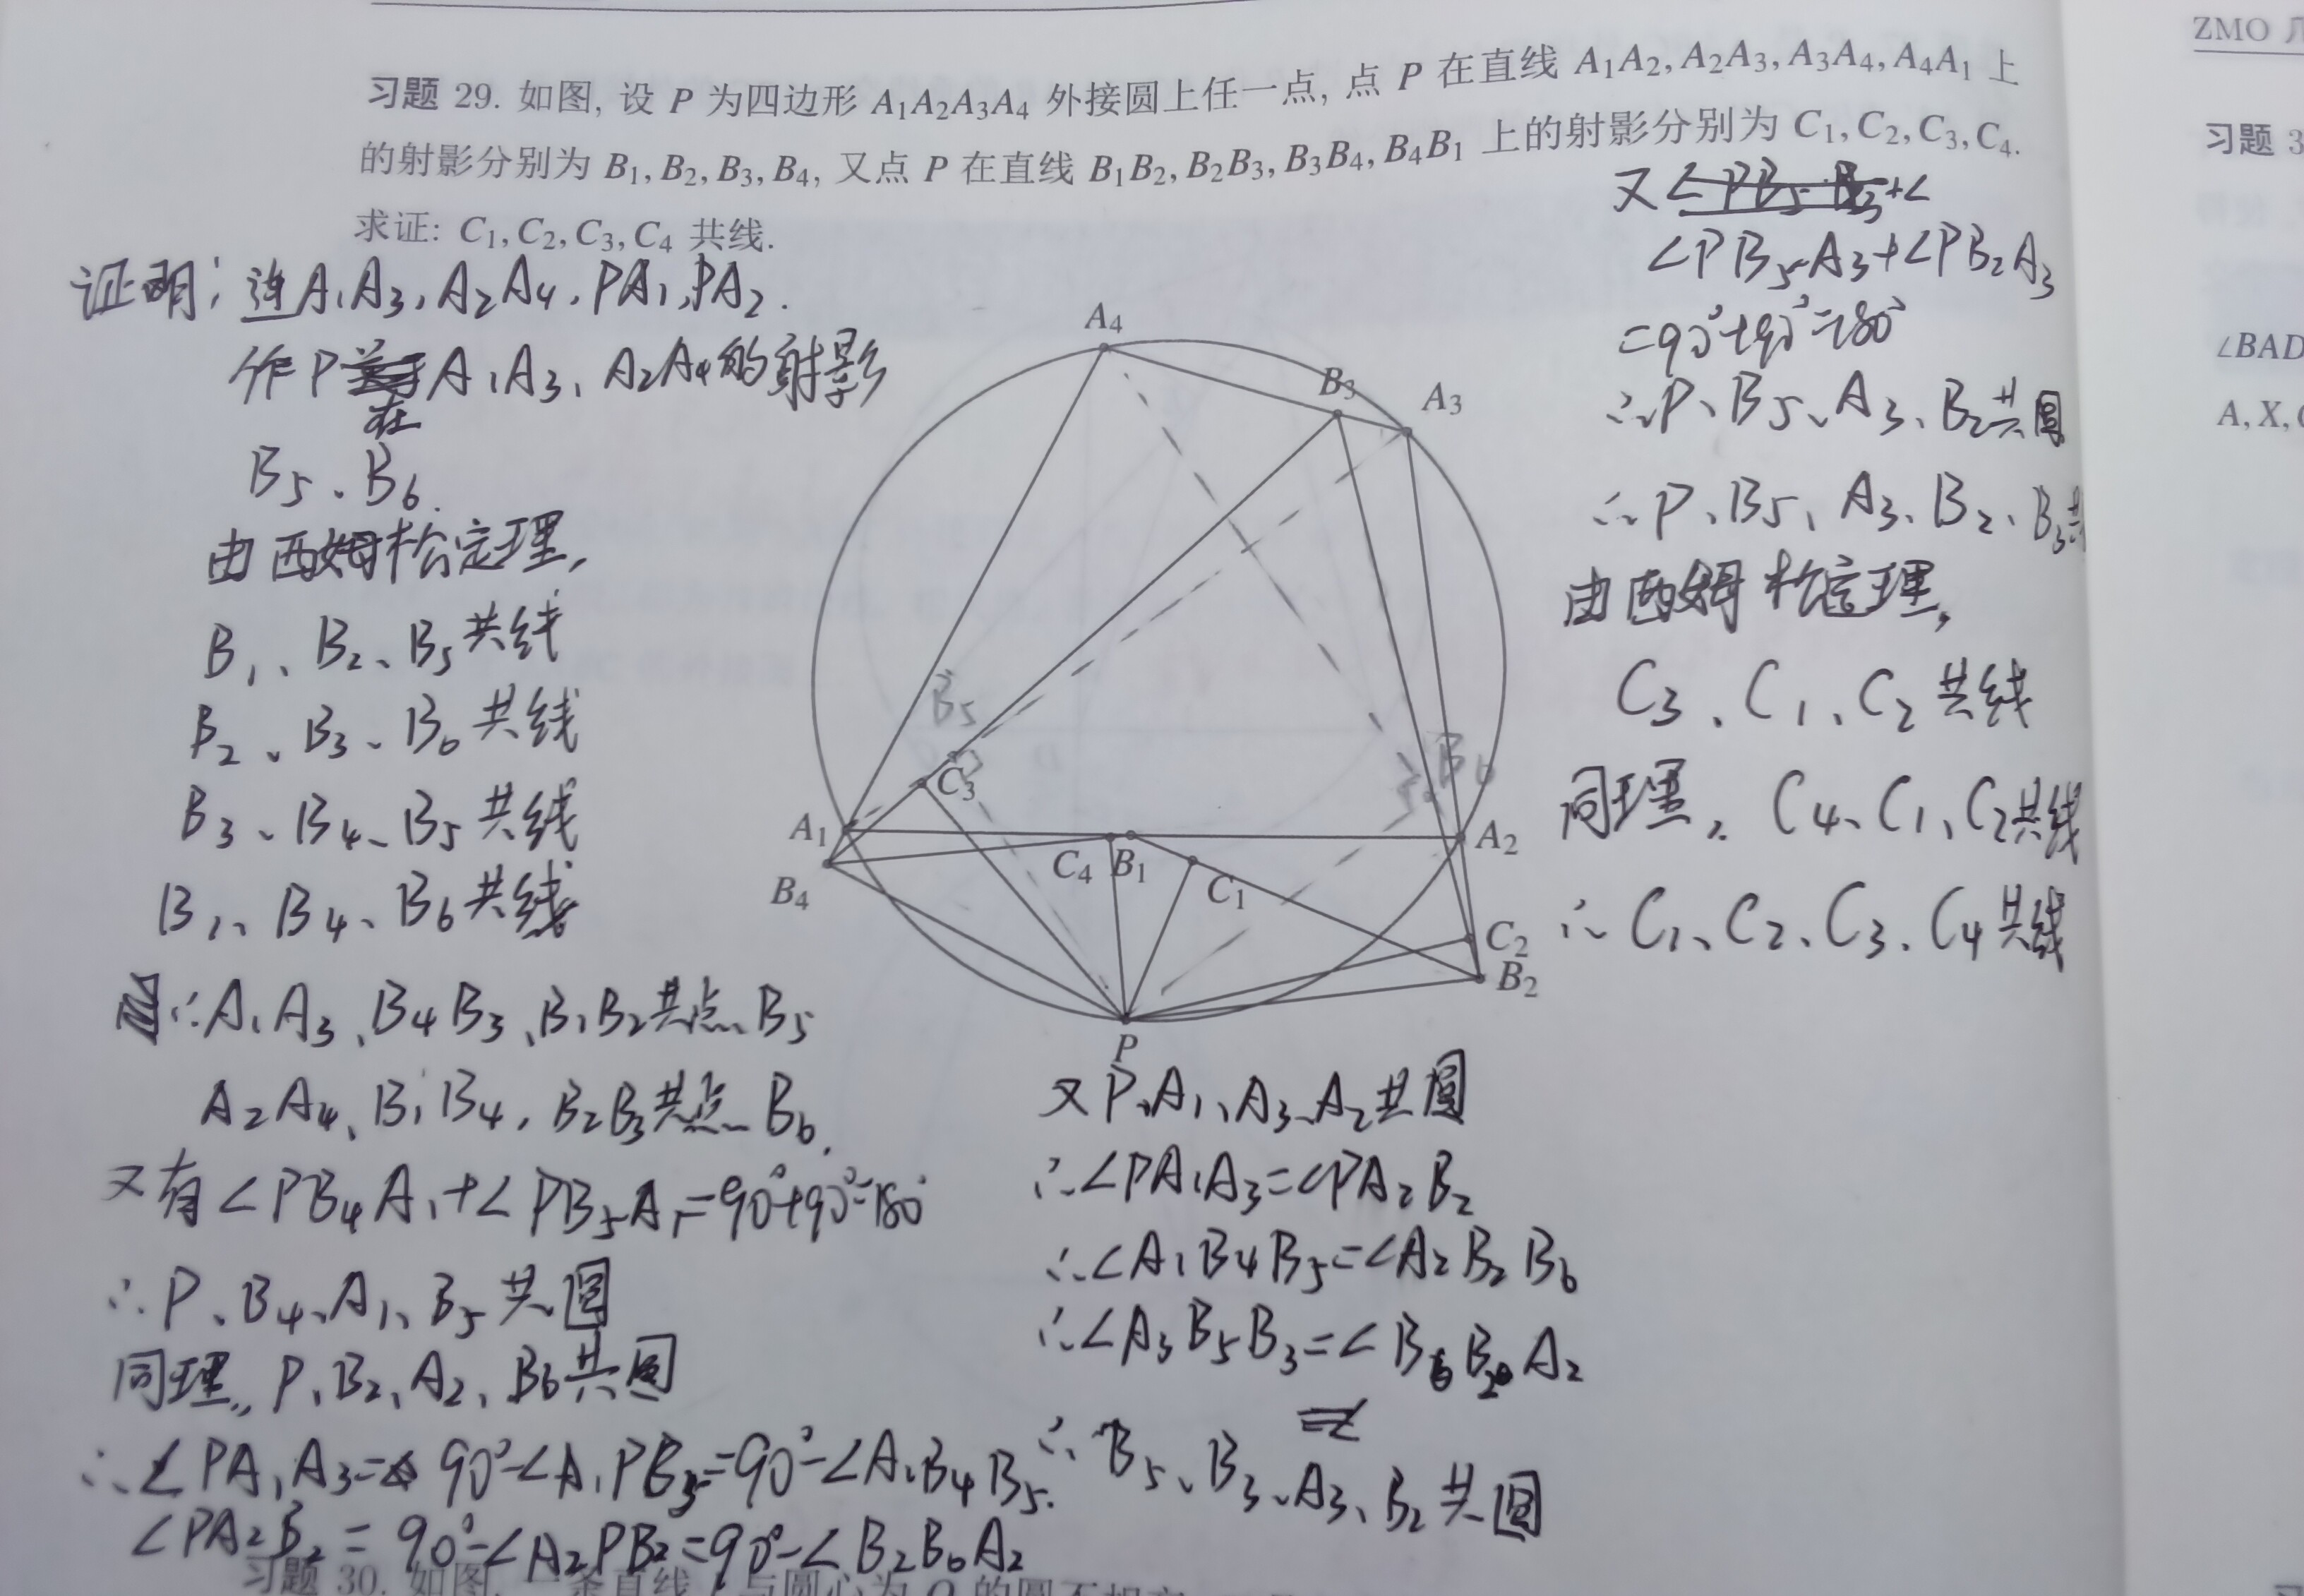 ZMO 几
习题 29. 如图, 设 P 为四边形 A₁A₂A₃A₄ 外接圆上任一点, 点 P 在直线 A₁A₂, A₂A₃, A₃A₄, A₄A₁ 上
的射影分别为 B₁, B₂, B₃, B₄, 又点 P 在直线 B₁B₂, B₂B₃, B₃B₄, B₄B₁ 上的射影分别为 C₁, C₂, C₃, C₄.
求证: C₁, C₂, C₃, C₄ 共线.
证明: 连A₁A₃, A₂A₄, PA₁, PA₂.
作P在A₁A₃、A₂A₄的射影
B₅、B₆.
由西姆松定理,
B₁、B₂、B₅共线
B₂、B₃、B₆共线
B₃、B₄、B₅共线
B₁、B₄、B₆共线
∴A₁A₃、B₄B₃、B₁B₂共点B₅
A₂A₄、B₁B₄, B₂B₃共点B₆.
又有∠PB₄A₁+∠PB₅A₁=90°+90°=180°
∴P、B₄、A₁、B₅共圆
同理, P、B₂、A₂、B₆共圆
∴∠PA₁A₃=90°-∠A₁PB₅=90°-∠A₁B₄B₅.
∠PA₂B₂=90°-∠A₂PB₂=90°-∠B₂B₆A₂
A₄
B₃
A₃
B₅
C₃
B₆
A₁
A₂
C₄
B₁
C₁
B₄
C₂
B₂
P
又P、A₁、A₃、A₂共圆
∴∠PA₁A₃=∠PA₂B₂
∴∠A₁B₄B₅=∠A₂B₂B₆
∴∠A₃B₅B₃=∠B₆B₂A₂
∴B₅、B₃、A₃、B₂共圆
又∠PB₅B₃+∠
∠PB₅A₃+∠PB₂A₃
=90°+90°=180°
∴P、B₅、A₃、B₂共圆
∴P、B₅、A₃、B₂、B₃共
由西姆松定理,
C₃、C₁、C₂共线
同理, C₄、C₁、C₂共线
∴C₁、C₂、C₃、C₄共线
习题 3
∠BAD
A, X,
习题 30. 如图, 一条直线
与圆心为 O 的圆不相交